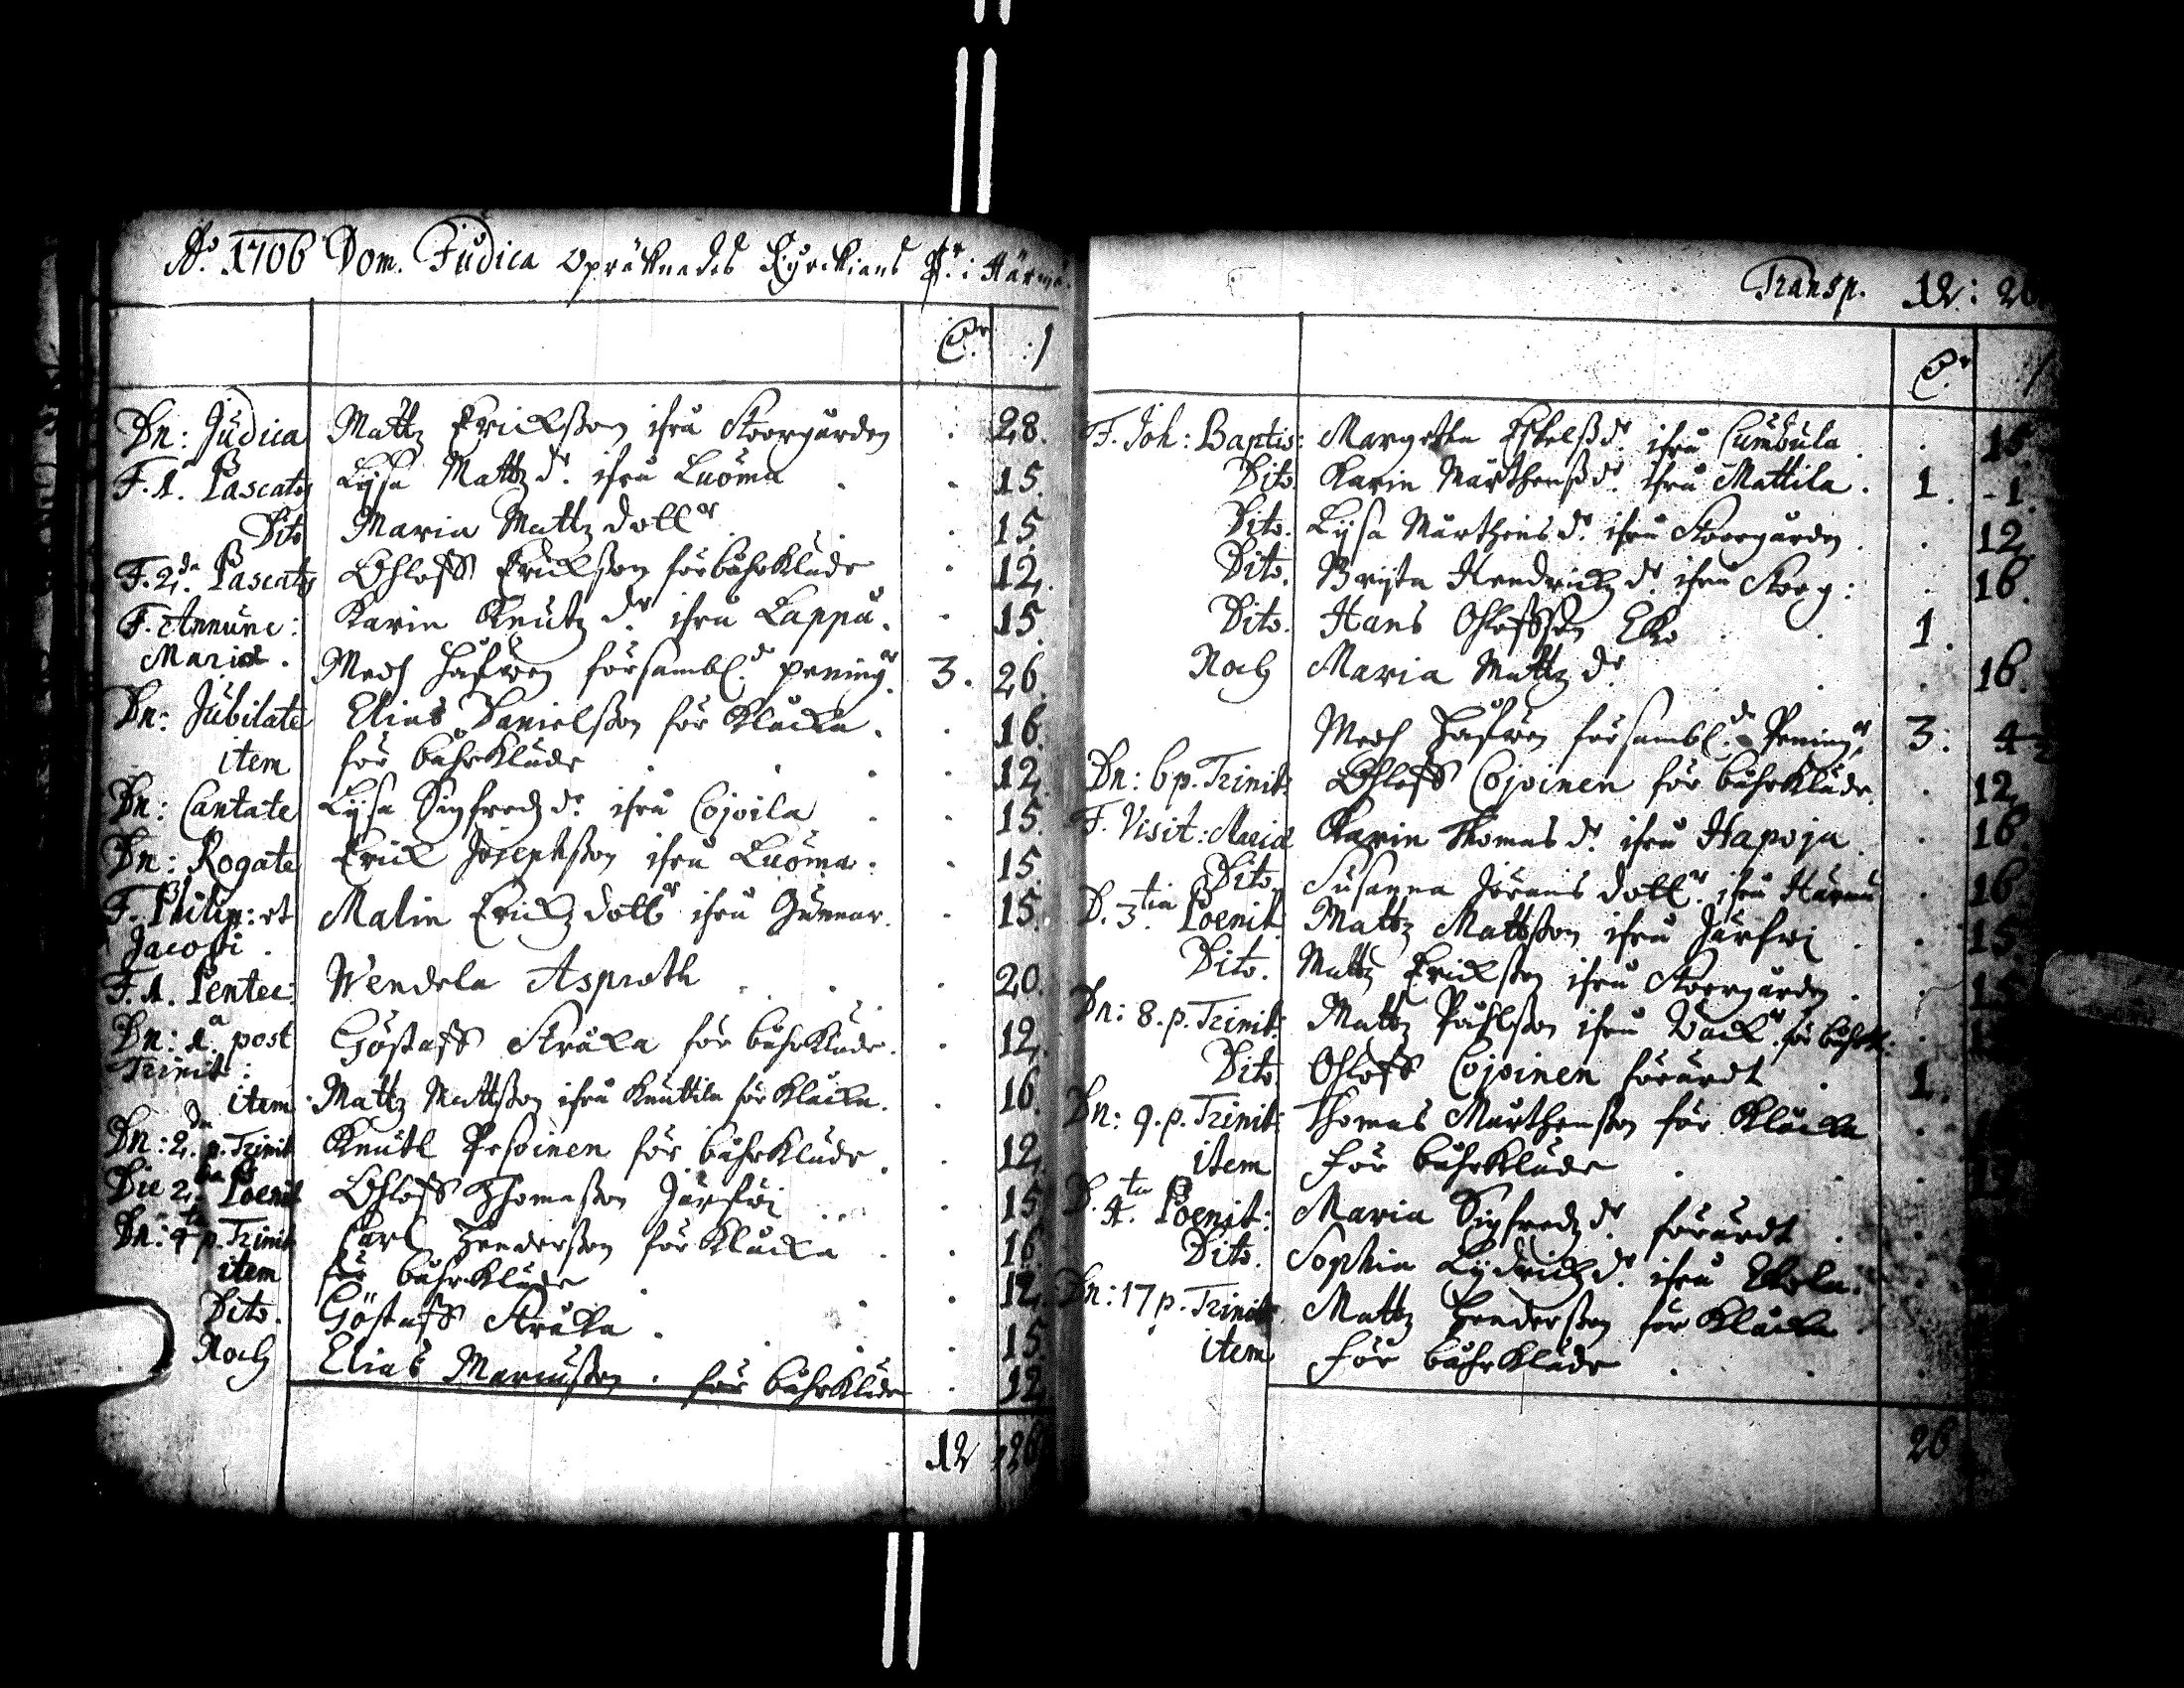 Ao. 1706 Dom. Judica opräknades Kyrckians Pr. i Härmä.
Dr. :/
Dn: Judica Mattz Erickßon ifrå Storgården . 28.
F. 1. Pascatos Lysa Mattz dr. ifrå Luoma . . 15.
Dito Maria Mattz dottr . . 15.
F. 2da. Pascatos Ohloff Erickßon för båhrkläde . 12.
F. Annunc: Karin Knutz dr. ifrå Lappu. . 15.
Mariæ. Medh håfwen församblde. peningr. 3. 26.
Dn: Jubilate Elias Danielßon för klåcka. . 16.
item för båhrkläde . . . 12.
Dn: Cantate Lysa Sigfredz dr. ifrå Cojoila . . 15.
Dn: Rogate Erick Josephßon ifrå Luoma. . 15.
F. Philip: et Malin Erickz dottr ifrå Gunnar. . 15.
Jacobi.
F. 1. Pentec: Wendela Asproth . . . 20.
Dn: 1a. post Göstaff Stråka för båhrkläde. . 12.
Trinit:
item Mattz Mattßon ifrå Knuttila för klåcka. . 16.
Dn: 2da. p. Trinit Knutt Pesoinen för båhrkläde. . 12.
Die 2da Poenit Ohloff Thomaßon Järfwi . . 15
Dn: 4ta p. Trinit Carl Hendersson för klåcka . . 16.
item för båhrkläde . . . 12.
Dito. Göstaff Stråka . . . 15
Noch Elias Marcußon. för båhrkläde . 12
12 26
Transp. 12: 26
Dr. /
F. Joh: Baptis: Margetha Eskelß dr. ifrå Cumbula . . 15
Dito. Karin Mårthenß dr. ifrå Mattila. 1. -1.
Dito. Lysa Mårthens dr. ifrå Storgården . . 12.
Dito. Brijta Hendrickz dr. ifrå Storg: . 16.
Dito. Hans Ohloffßon Eko . 1.
Noch Maria Mattz dr . . 16.
Medh håfwen församblde. Peningr. 3: 4
Dn: 6 p. Trinit: Ohloff Cojoinen för båhrkläde. . 12.
F. Visit: Mariæ Karin Thomas dr. ifrå Hapoja . . 16
Dito. Susanna Jörans dottr. ifrå Härmä . 16
D. 3tia Poenit Mattz Mattßon ifrå Järfwi . . 15
Dito. Mattz Erickßon ifrå Storgården . . 15
Dn: 8. p. Trinit: Mattz Påhlßon ifrå för båhrkl: .
Dito. Ohloff Cojoinen förärdt . 1.
Dn: 9. p. Trinit: Thomas Mårthenßon för klåcka .
item för båhrkläde . . .
D. 4ta Poenit: Maria Sigfredz dr. förärdt . .
Dito. Sophia Lydrichz dr. ifrå Ekola. .
Dn: 17 p. Trinit: Mattz Hendersson för klåcka .
item för båhrkläde . . .
26